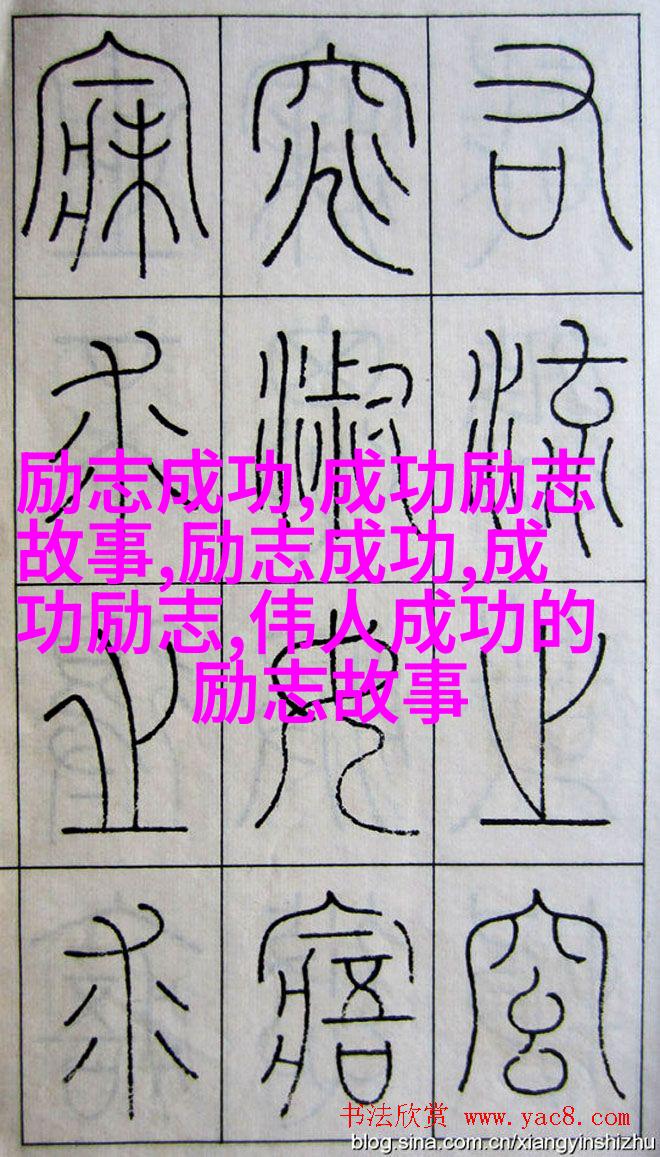 右流之窈
窕淑女寤
寐求之求
励志成功,成功励志
故事,励志成功,成
功励志,伟人成功的
励志故事
书法欣赏 www.yac8.com
blog.sina.com.cn/xiangyinshizhu